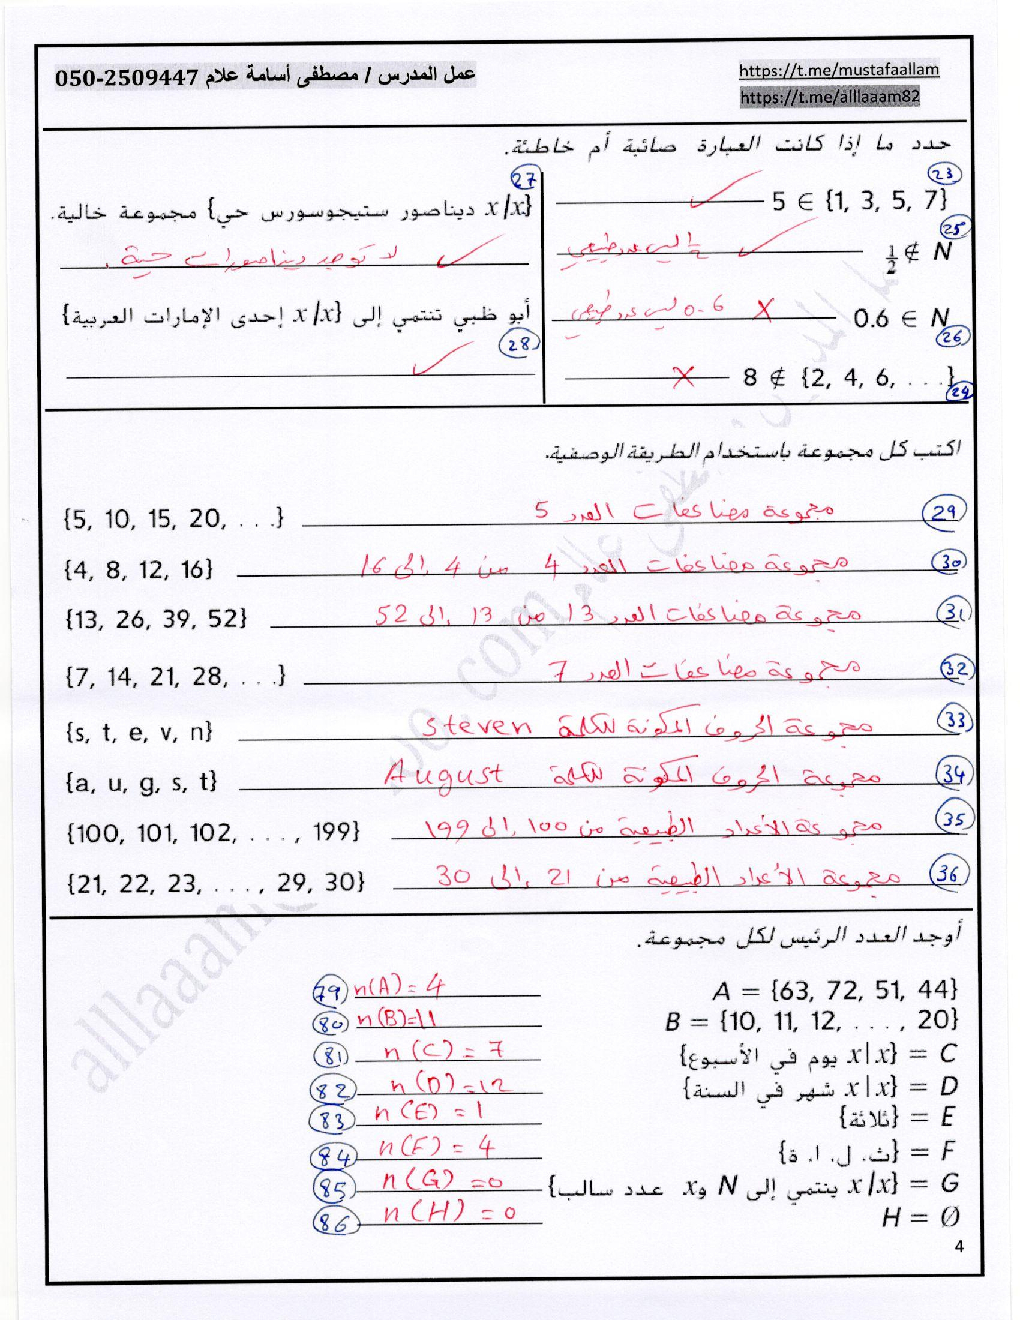 عمل المدرس / مصطفى أسامة علام 2509447-050
https://t.me/mustafaallam
https://t.me/alllaaam82
حدد ما إذا كانت العبارة صائبة أم خاطئة.
23
5 ∈ {1, 3, 5, 7} ✓
25
1/2 ∉ N ✓ 1/2 ليس عدد طبيعي
0.6 ∈ N X 0.6 ليس عدد طبيعي
26
8 ∉ {2, 4, 6, . . .} X
24
27
{x/x ديناصور ستيجوسورس حي} مجموعة خالية.
✓ لا توجد ديناصورات حية.
أبو ظبي تنتمي إلى {x/x إحدى الإمارات العربية}
28
✓
اكتب كل مجموعة باستخدام الطريقة الوصفية.
{5, 10, 15, 20, . . .} مجموعة مضاعفات العدد 5 29
{4, 8, 12, 16} مجموعة مضاعفات العدد 4 من 4 إلى 16 30
{13, 26, 39, 52} مجموعة مضاعفات العدد 13 من 13 إلى 52 31
{7, 14, 21, 28, . . .} مجموعة مضاعفات العدد 7 32
{s, t, e, v, n} مجموعة الحروف المكونة لكلمة steven 33
{a, u, g, s, t} مجموعة الحروف المكونة لكلمة August 34
{100, 101, 102, . . . , 199} مجموعة الأعداد الطبيعية من 100 إلى 199 35
{21, 22, 23, . . . , 29, 30} مجموعة الأعداد الطبيعية من 21 إلى 30 36
أوجد العدد الرئيس لكل مجموعة.
A = {63, 72, 51, 44} n(A)= 4 79
B = {10, 11, 12, . . . , 20} n(B)=11 80
C = {x|x يوم في الأسبوع} n(C) = 7 81
D = {x|x شهر في السنة} n(D)=12 82
E = {ثلاثة} n(E) = 1 83
F = {ث. ل. ا. ة} n(F) = 4 84
G = {x/x ينتمي إلى N وx عدد سالب} n(G) =0 85
H = Ø n(H) = 0 86
4